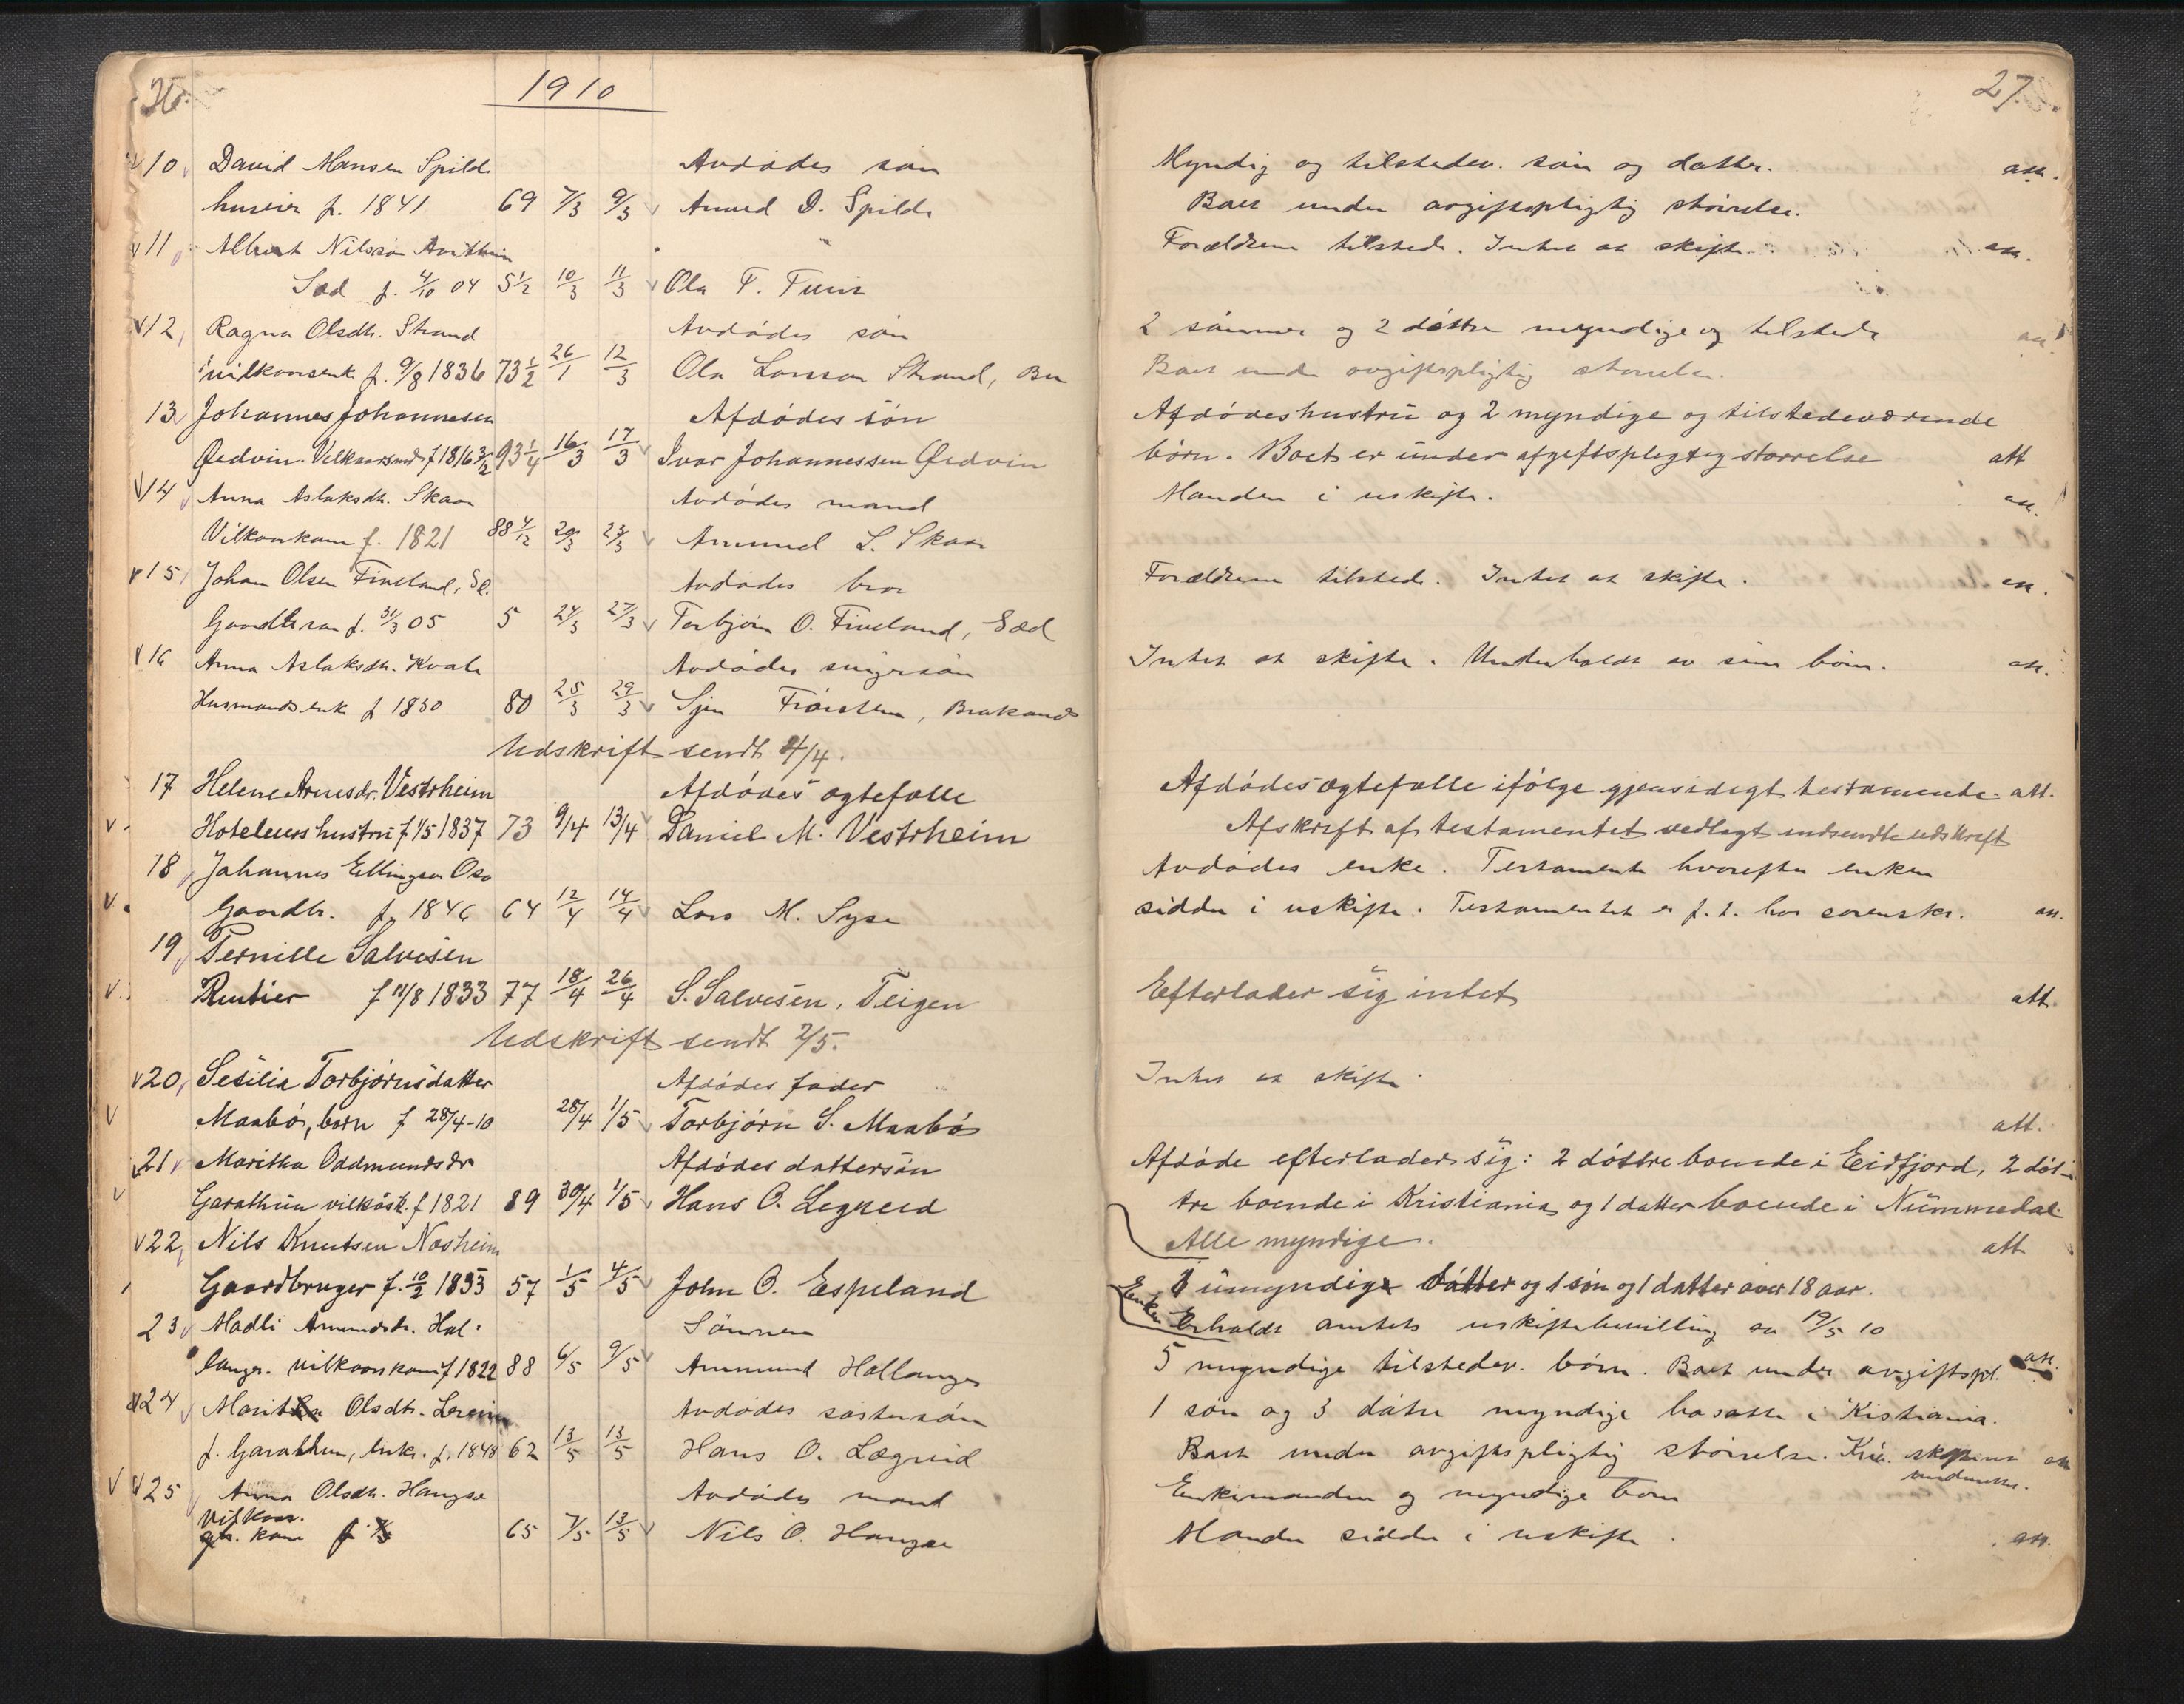 26.
1910
10 David Hansen Spilde Avdødes søn
huseier f. 1841 69 7/3 9/3 Amund D. Spilde
11 Albert Nilsson
Sæd f. 4/10 04 5 1/2 10/3 11/3 Ola T.
12 Ragna Olsdtr. Strand Avdødes søn
vilkaarsenke f. 9/8 1836 73 1/2 26/1 12/3 Ola Larsson Strand, Bu
13 Johannes Johannesen Afdødes søn
Øydvin. Velkaarsmd f 1816 3/12 93 1/4 16/3 17/3 Ivar Johannessen Øydvin
14 Anna Aslaksdtr. Skaar Avdødes mand
Vilkaarkone f. 1821 88 4/12 20/3 23/3 Amund L. Skaar
15 Johan Olsen Fiveland, Avdødes bror
Gaardbr. søn f. 31/3 05 5 24/3 27/3 Torbjørn O. Fiveland, Sæd
16 Anna Aslaksdtr. Kvale Avdødes svigersøn
Husmandsenke f 1830 80 25/3 29/3 Sjur
Udskrift sendt 4/4.
17 Helene Arnesdr. Vestrheim Afdødes ægtefælle
Hoteleiers hustru f 1/5 1837 73 9/4 13/4 Daniel M. Vestrheim
18 Johannes Ellingsen Oso
Gaardbr. f. 1846 64 12/4 14/4 Lars M. Syse
19 Pernille Salvesen
Rentier f 11/8 1833 77 18/4 26/4 S. Salvesen, Teigen
Udskrift sendt 2/5.
20 Sesilia Torbjørnsdatter Afdødes fader
Maabø, barn f 28/4-10 28/4 1/5 Torbjørn S. Maabø
21 Maritha Oddmundsdr Afdødes dattersøn
Garathun vilkåsk. f 1821 89 30/4 1/5 Hans O. Legreid
22 Nils Knutsen Næsheim
Gaardbruger f. 10/2 1853 57 1/5 4/5 John O. Espeland
23 Madli Amundsdr. Hal-
langer. vilkaarskone f 1822 88 6/5 9/5 Ammund Hallanger
24 Marita Olsdtr. Avdødes søstersøn
f. Garathun, enke. f. 1848 62 13/5 13/5 Hans O. Lægreid
25 Anna Olsdtr. Haugse Avdødes mand
vilkaar.
gbr. kone f. 65 7/5 13/5 Nils O. Haugse
27.
Myndig og tilstedev. søn og datter. att.
Boet under avgiftspligtig størrelse.
Forældrene tilstede. Intet at skifte. att.
2 sønner og 2 døttre myndige og tilstede att.
Boet under avgiftspligtig størrelse.
Afdødes hustru og 2 myndige og tilstedeværende
børn. Boet er under afgiftspligtig størrelse att
Manden i uskifte. att.
Forældrene tilstede. Intet at skifte. att.
Intet at skifte. Underholdt av sine børn. att.
Afdødes ægtefælle ifølge gjensidigt testamente. att.
Afskrift af testamentet vedlagt indsendte udskrift
Avdødes enke. Testamente hvorefter enken
sidder i uskifte. Testamentet er f. t. hos sorenskr. att.
Efterlader sig intet att
Intet at skifte.
att.
Afdøde efterlader sig: 2 døttre boende i Eidfjord, 2 døt-
tre boende i Kristiania og 1 datter boende i Nummedal
Alle myndige. att
1 umyndig datter og 1 søn og 1 datter over 18 aar.
Enken Erholdt amtets uskiftebevilling av 19/5 10
5 myndige tilstedev. børn. Boet under avgiftspl. att.
1 søn og 3 døtre myndige bosatte i Kristiania.
Boet under avgiftspligtig størrelse. Kria. skifteret att
underrettet.
Enkemanden og myndige børn
Manden sidder i uskifte. att.